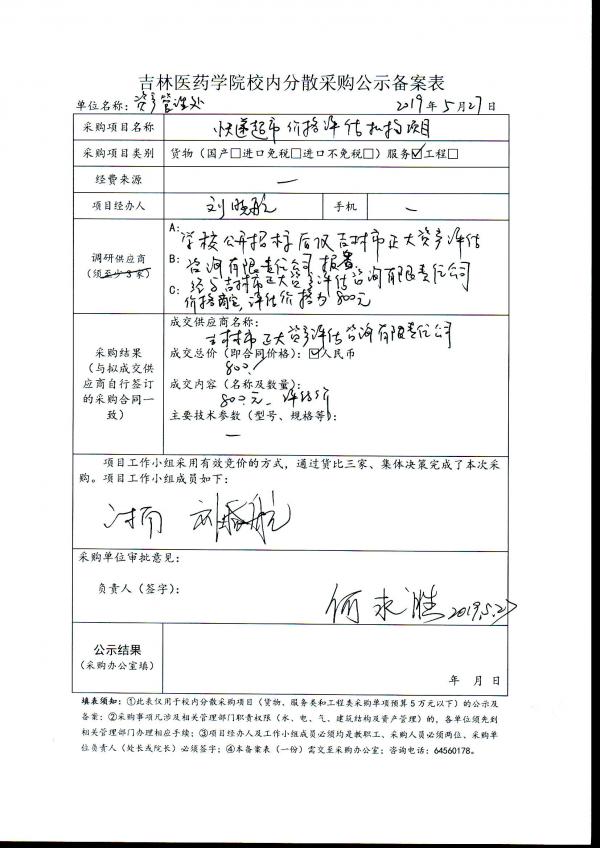 吉林医药学院校内分散采购公示备案表
单位名称：资产管理处 2019年5月27日
采购项目名称 快递超市价格评估机构项目
采购项目类别 货物（国产□进口免税□进口不免税□）服务☑工程□
经费来源 —
项目经办人 刘晓航 手机 —
调研供应商
（须至少3家）
A：学校公开招标后仅吉林市正大资产评估
B：咨询有限责任公司报名
C：经与吉林市正大资产评估咨询有限责任公司
价格商定，评估价格为800元
采购结果
（与拟成交供
应商自行签订
的采购合同一
致）
成交供应商名称：
吉林市正大资产评估咨询有限责任公司
成交总价（即合同价格）：☑人民币
800.
成交内容（名称及数量）：
800元
主要技术参数（型号、规格等）：
—
项目工作小组采用有效竞价的方式，通过货比三家、集体决策完成了本次采
购。项目工作小组成员如下：
刘晓航
采购单位审批意见：
负责人（签字）：
何永胜 2019.5.27
公示结果
（采购办公室填）
年 月 日
填表须知：①此表仅用于校内分散采购项目（货物、服务类和工程类采购单项预算5万元以下）的公示及
备案；②采购事项凡涉及相关管理部门职责权限（水、电、气、建筑结构及资产管理）的，各单位须先到
相关管理部门办理相应手续；③项目经办人及工作小组成员必须均是教职工、采购人员必须两位、采购单
位负责人（处长或院长）必须签字；④本备案表（一份）需交至采购办公室；咨询电话：64560178。